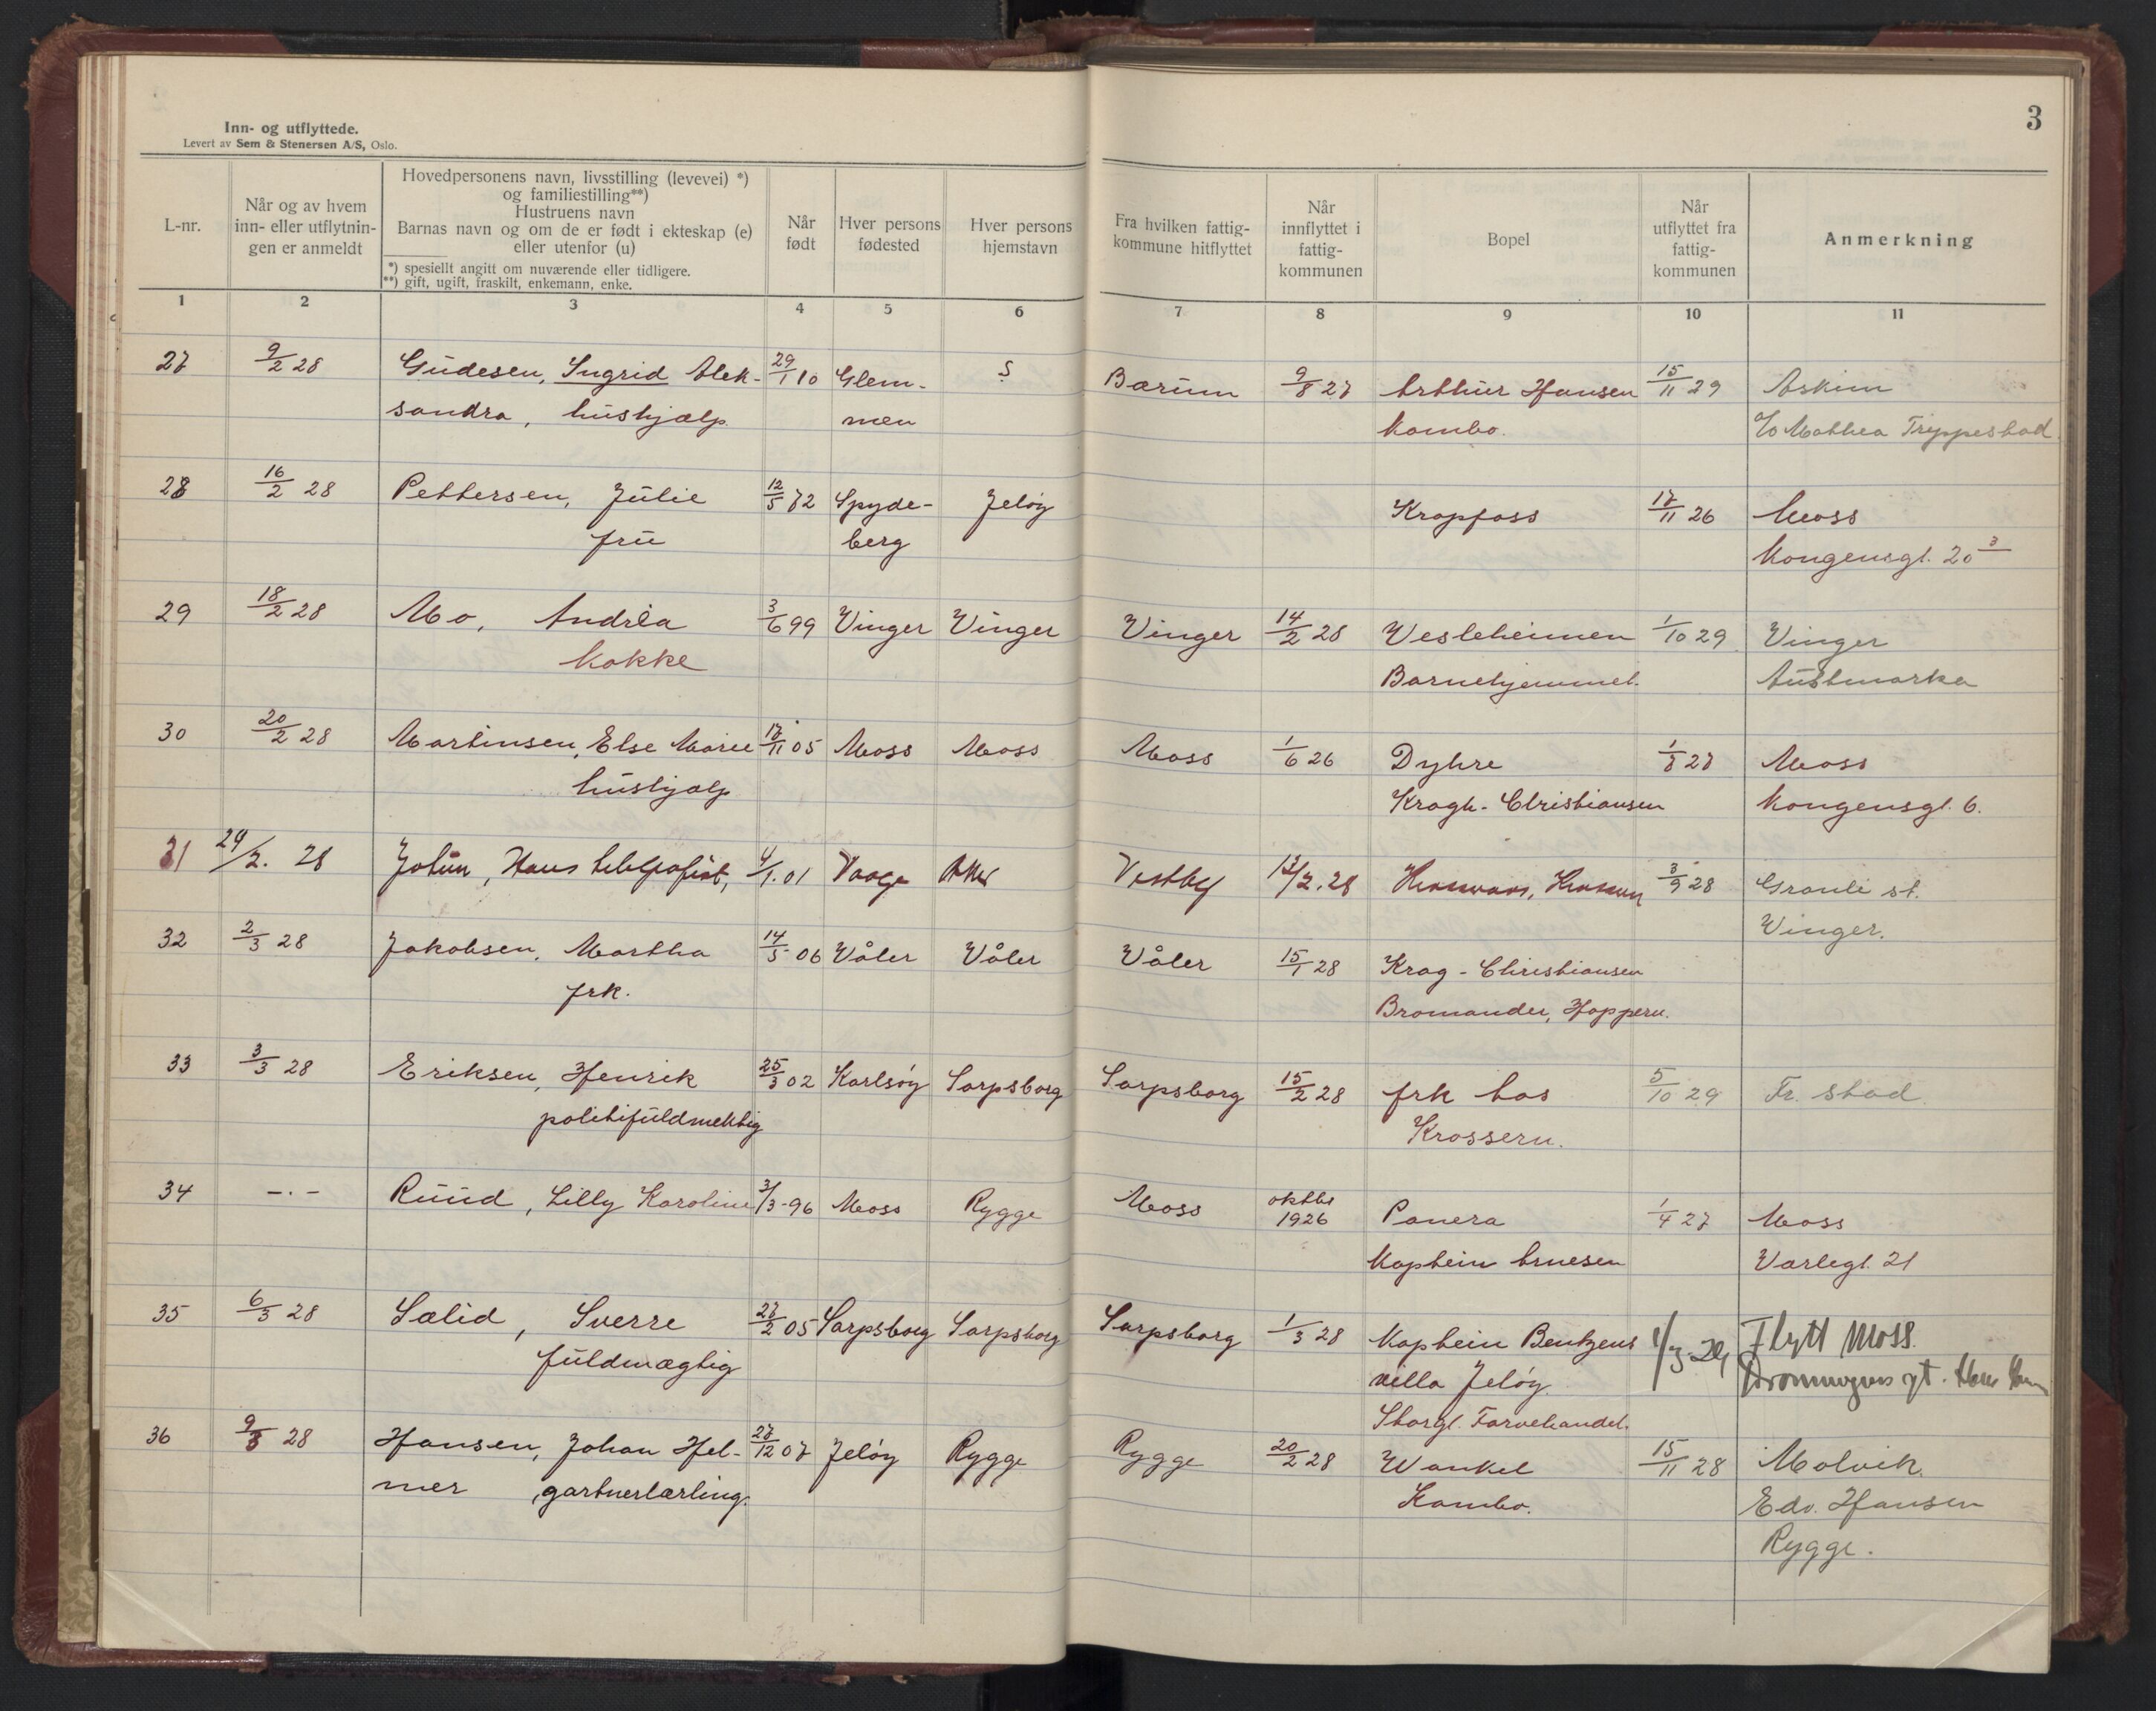 Inn- og utflyttede.
Levert av Sem & Stenersen A/S, Oslo.
3
L-nr.
Når og av hvem inn- eller utflytnin- gen er anmeldt
Hovedpersonens navn, livsstilling (levevei) *)
og familiestilling**)
Hustruens navn
Barnas navn og om de er født i ekteskap (e)
eller utenfor (u)
*) spesielt angitt om nuværende eller tidligere.
**) gift, ugift, fraskilt, enkemann, enke.
Når født
Hver persons fødested
Hver persons hjemstavn
Fra hvilken fattig- kommune hitflyttet
Når innflyttet i fattig- kommunen
Bopel
Når utflyttet fra fattig- kommunen
Anmerkning
1 2 3 4 5 6 7 8 9 10 11
27 9/2 28 Gudesen, Ingrid Alek- 29/1 10 Glem- S Bærum 9/8 27 Arthur Hansen 15/11 29 Askim
sandra, hushjælp. men Kambo. c/o Mathea Trippestad.
28 16/2 28 Pettersen, Julie 12/5 72 Spyde- Jeløy Krapfoss 17/11 26 Moss
fru berg Kongensgt. 20 3
29 18/2 28 Mo, Andréa 3/6 99 Vinger Vinger Vinger 14/2 28 Vesleheimen 1/10 29 Vinger
kokke Barnehjemmet. Austmarka
30 20/2 28 Martinsen, Else Marie 17/11 05 Moss Moss Moss 1/6 26 Dyhre 1/8 27 Moss
hushjælp Kragh-Christiansen Kongensgt. 6.
31 29/2. 28 Hans telegrafist, 4/1. 01 Vaage Aker Vestby 13/2. 28 3/9 28 Granli st.
Vinger.
32 2/3 28 Jakobsen, Martha 14/5 06 Våler Våler Våler 15/1 28 Krag-Christiansen
frk. Bromander, Hoppern.
33 3/3 28 Eriksen, Henrik 25/3 02 Karlsøy Sarpsborg Sarpsborg 15/2 28 frk Aas 5/10 29 Fr. stad.
politifuldmektig Krossern.
34 -.- Ruud, Lilly Karoline 3/3-96 Moss Rygge Moss oktbr 1926 Panera 1/4 27 Moss
Kaptein Arnesen Varlegt. 21
35 6/3 28 Sælid, Sverre 27/2 05 Sarpsborg Sarpsborg Sarpsborg 1/3 28 Kaptein Bentzens 1/3-29 Flytt Moss.
fuldmægtig villa Jeløy. Dronningens gt.
Storgt. Farvehandel.
36 9/3 28 Hansen, Johan Hel- 27/12 07 Jeløy Rygge Rygge 20/2 28 Wankel 15/11 28 Molvik.
mer, gartnerlærling. Kambo. Edv. Hansen
Rygge.